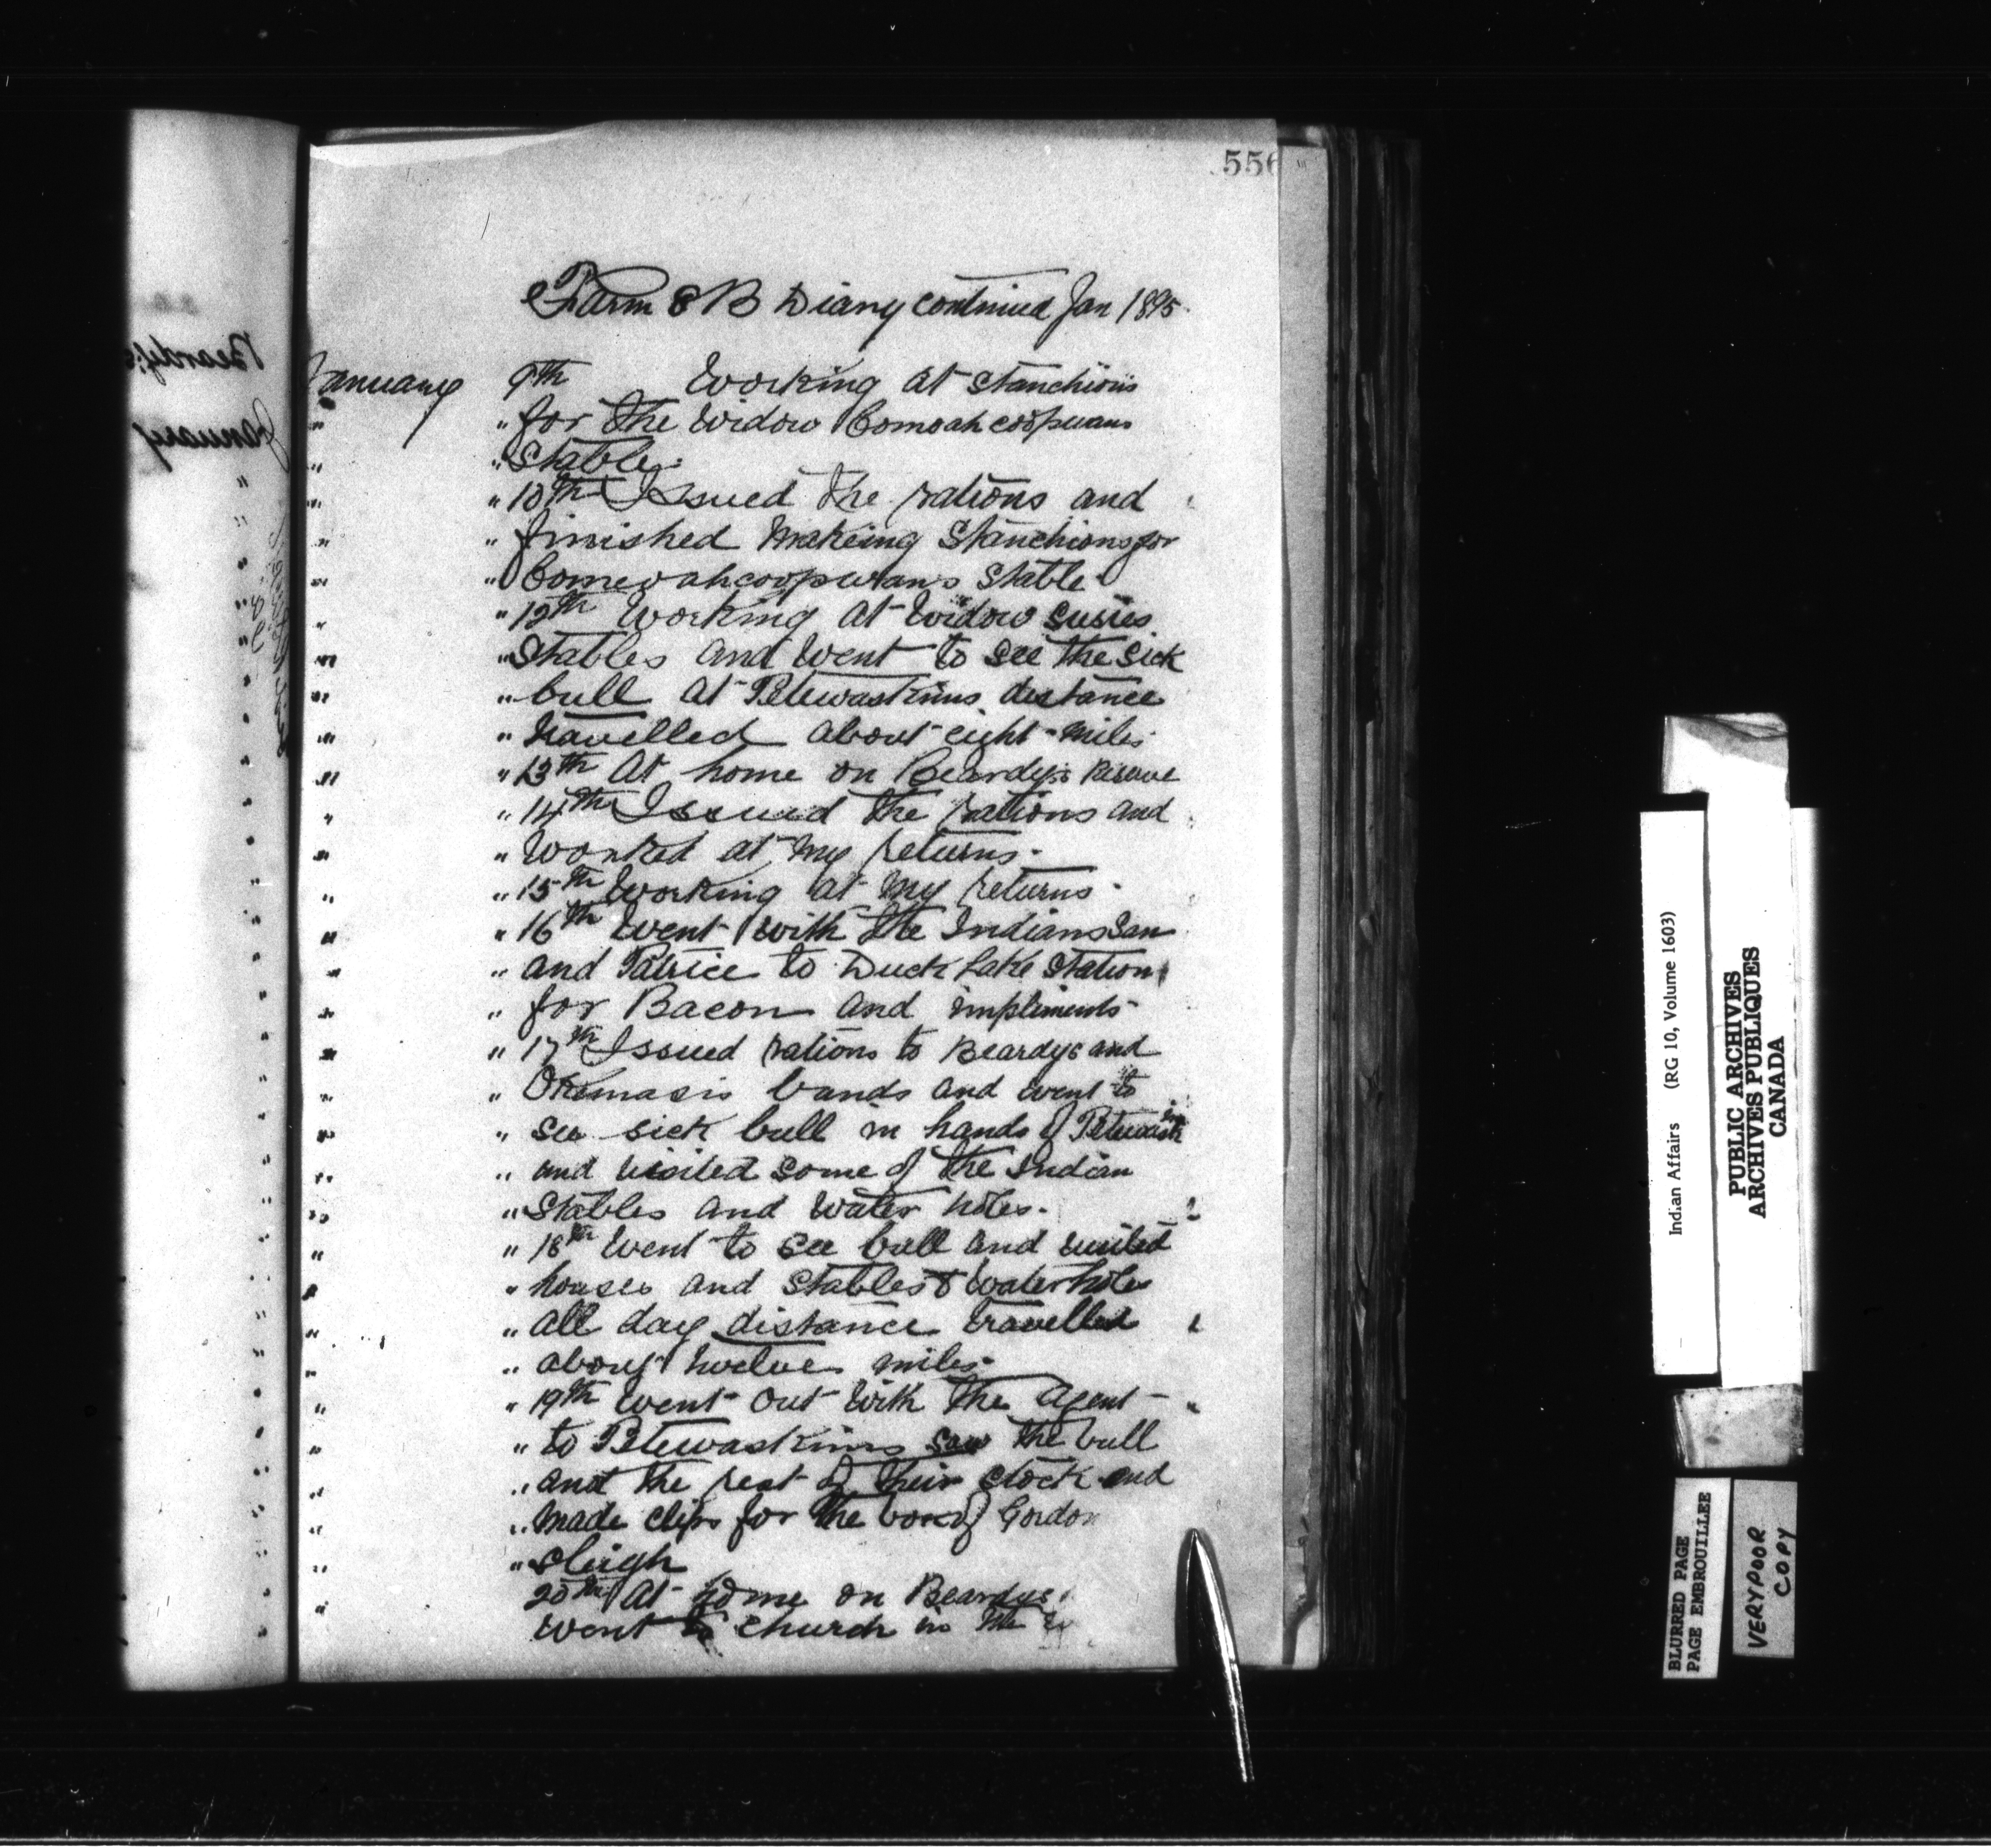 556
Farm 8 B Diary continued Jan 1895
January 9th Working at Stanchions
" " for the Widow Comoahcoopwans
" " Stable.
" " 10th Issued the rations and
" " finished Makeing Stanchions for
" " Comewahcoopwans Stable
" " 12th Working at Widow Susies
" " Stables and Went to See the Sick
" " bull at Petewaskins distance
" " travelled about eight Miles
" " 13th At home on Beardys Reserve
" " 14th Issued the rations and
" " Worked at My returns.
" " 15th Working at My returns.
" " 16th Went With the Indians
" " and Patrice to Duck Lake Station
" " for Bacon and impliments
" " 17th Issued rations to Beardys and
" " Okemasis bands and went to
" " see sick bull in hands of Petewaskin
" " and Visited some of the Indian
" " Stables and Water holes.
" " 18th Went to See bull and visited
" " houses and Stables & Water holes
" " all day distance travelled
" " about twelve miles.
" " 19th Went out With the Agent
" " to Petewaskins saw the bull
" " and the rest of their stock and
" " Made clips for the box of Gordon
" " Sleigh
" 20th At home on Beardys
Went to Church in the
Beardy's
January
Indian Affairs (RG 10, Volume 1603)
PUBLIC ARCHIVES
ARCHIVES PUBLIQUES
CANADA
BLURRED PAGE
PAGE EMBROUILLEE
VERY POOR
COPY